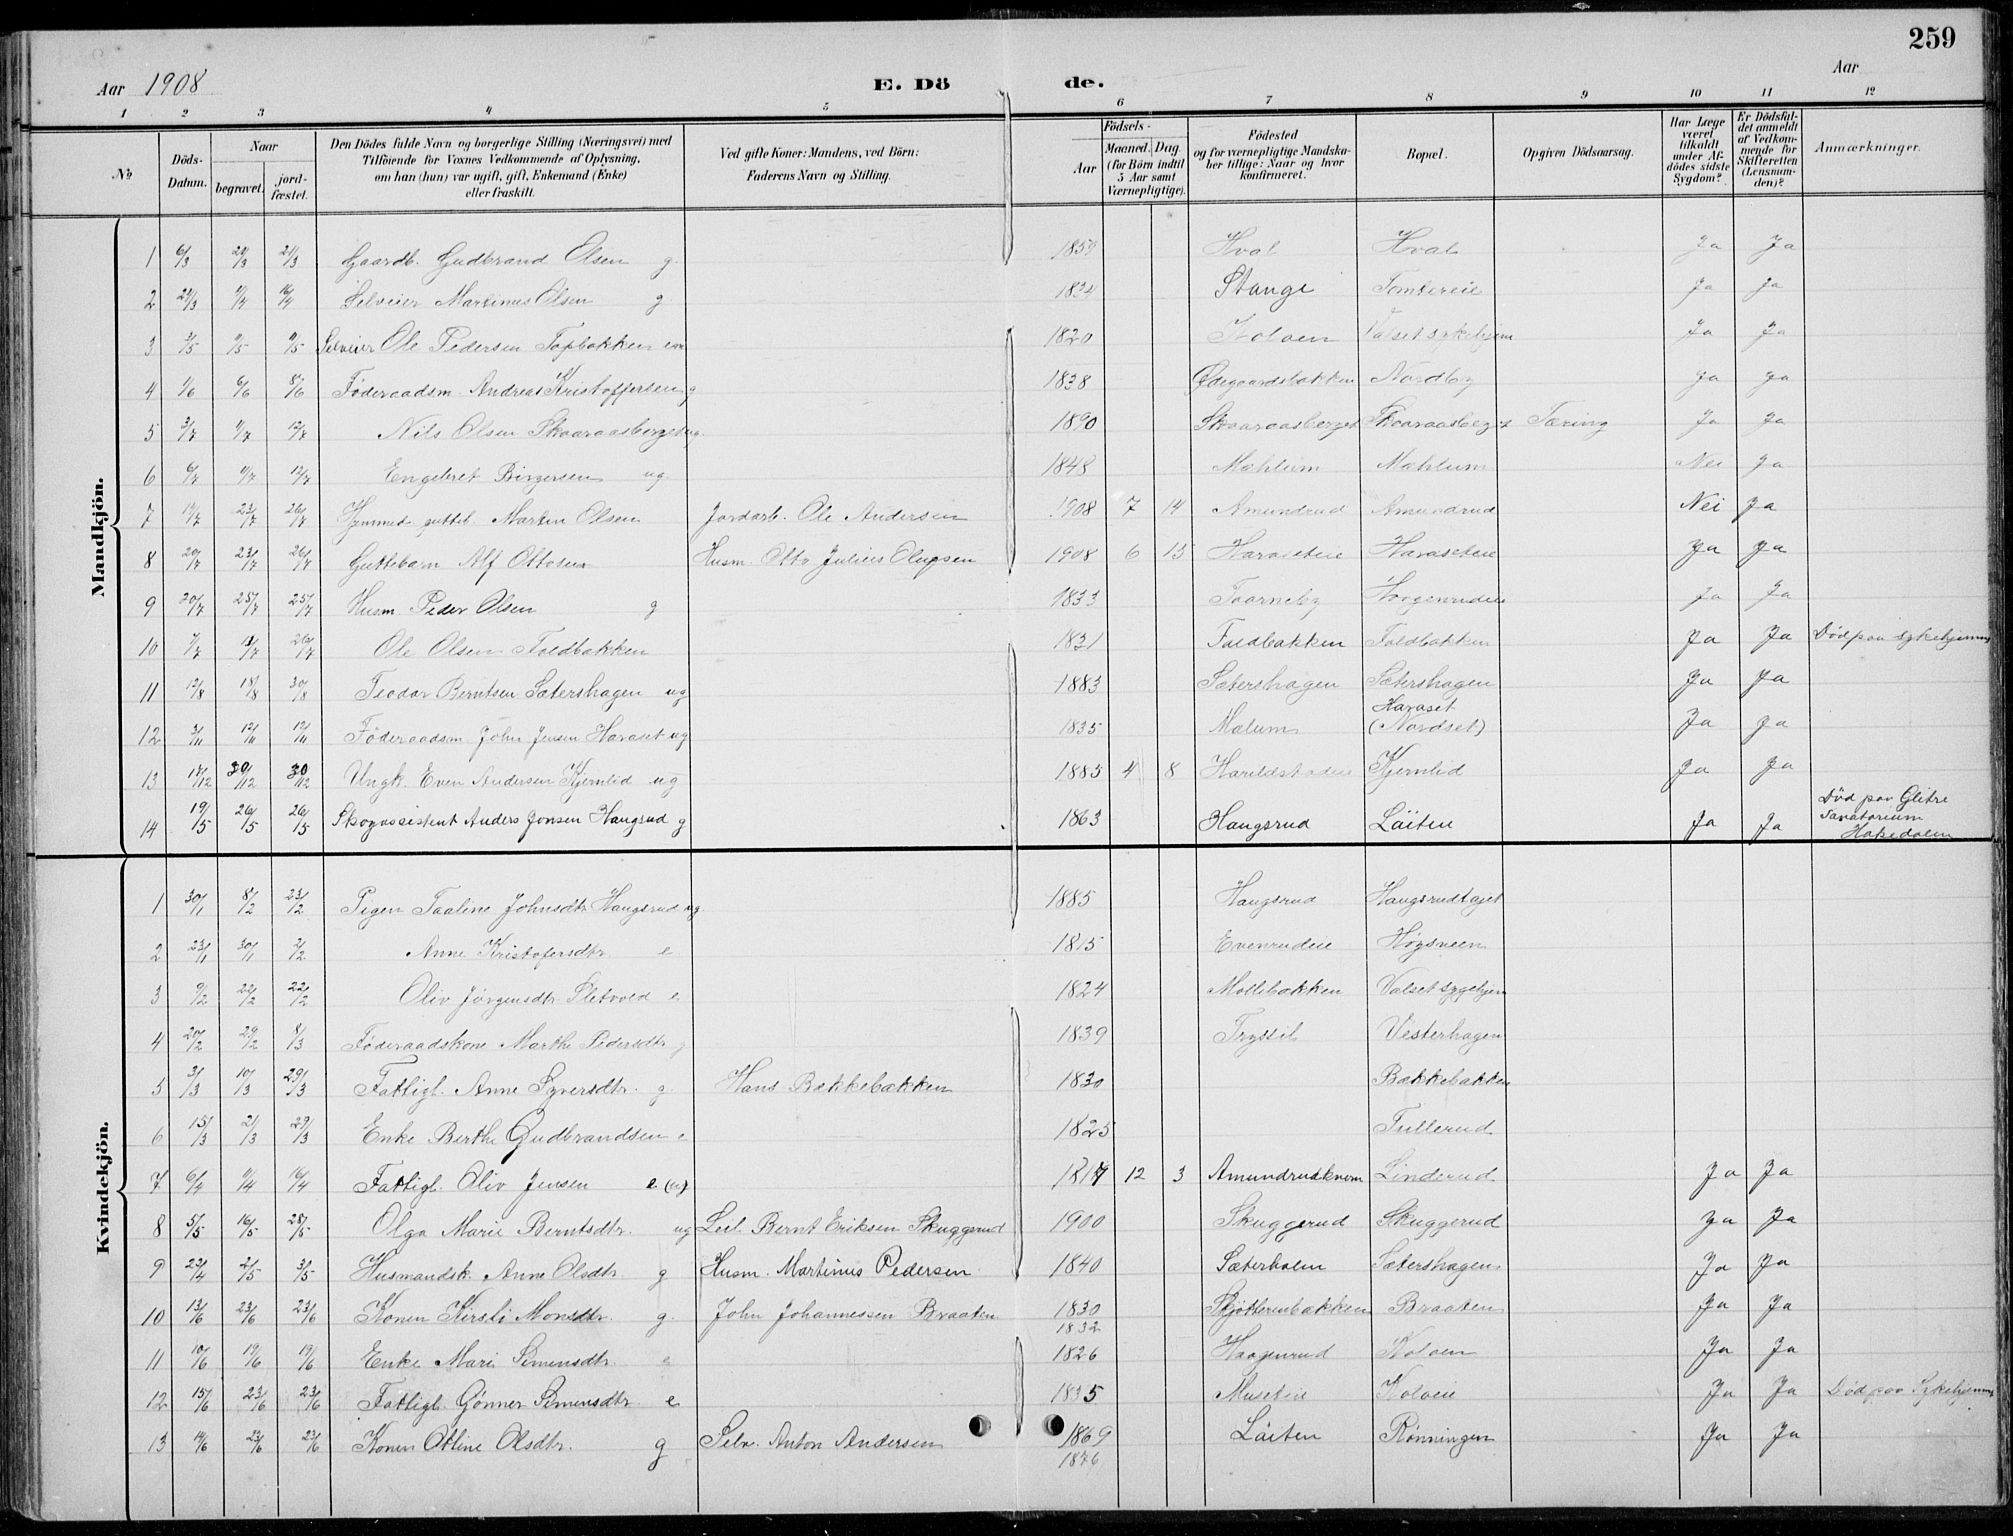 259
Aar 1908
E. Dö de.
Aar
1 2 3 4 5 6 7 8 9 10 11 12
No
Döds-Datum.
Naar
begravet.
jord-fæstet.
Den Dödes fulde Navn og borgerlige Stilling (Næringsvei) med Tilföiende for Voxnes Vedkommende af Oplysning, om han (hun) var ugift, gift, Enkemand (Enke) eller fraskilt.
Ved gifte Koner: Mandens, ved Börn: Faderens Navn og Stilling.
Födsels-
Aar
Maaned. Dag.
(for Börn indtil 5 Aar samt Værnepligtige).
Födested og for værnepligtige Mandskaber tillige: Naar og hvor konfirmeret.
Bopæl.
Opgiven Dödsaarsag.
Har Læge været tilkaldt under Afdødes sidste Sygdom?
Er Dödsfaldet anmeldt af Vedkommende for Skifteretten (Lensmanden)?
Anmærkninger.
Mandkjön.
1 6/3 21/3 21/3 Gaardb. Gudbrand Olsen g. 1859 Hval Hval Ja Ja
2 21/3 Selveier Martinus Olsen g 1834 Stange Tomtereie Ja Ja
3 Selveier Ole Pedersen Topbakken em 1820 Koloen Valset sykehjem Ja Ja
4 1/6 6/6 8/6 Föderaadsm. Andreas Kristoffersen g 1838 Ødegaardsbakken Nordby Ja Ja
5 3/7 9/7 12/7 Nils Olsen Skaaraasberget ug. 1890 Skaaraasberget Skaaraasberget Tæring Ja Ja
6 6/7 11/7 12/7 Engebret Birgersen ug 1848 Mæhlum Mæhlum Nei Ja
7 19/7 23/7 26/7 Hjemmed. gutteb. Martin Olsen Jordarb. Ole Andersen 1908 7 14 Amundrud Amundrud Nei Ja
8 20/7 23/7 26/7 Guttebarn Alf Ottosen Husm. Otto Julius Olufsen 1908 6 15 Haraseteie Haraseteie Ja Ja
9 20/7 25/7 25/7 Husm. Peder Olsen g 1833 Taarneby Haagenrudeie Ja Ja
10 7/7 11/7 26/7 Ole Olsen Foldbakken 1831 Foldbakken Foldbakken Ja Ja Død paa sykehjemm
11 12/8 18/8 30/8 Teodor Berntsen Sætershagen ug 1883 Sætershagen Sætershagen Ja Ja
12 3/11 12/11 12/11 Föderaadsm John Jensen Haraset ug 1835 Malum Haraset (Nordset) Ja Ja
13 17/12 30/12 30/12 Ungk. Even Andersen Kjernlid ug 1885 4 8 Kjernlid Ja Ja
14 19/5 26/5 26/5 Skogassistent Anders Jonsen Haugsrud g 1863 Haugsrud Löiten Ja Ja Død paa Glitre Sanatorium Hakedalen
Kvindekjön.
1 30/1 8/2 23/2 Pigen Taaline Johnsdtr Haugsrud ug 1885 Haugsrud Haugsrudtajet
2 23/1 30/1 2/2 Anne Kristofersdtr e 1815 Evenrudeie Høgsveen
3 9/2 22/2 22/2 Oliv Jörgensdtr Sletvold e 1824 Mollebakken Valset sygehjem
4 20/2 29/2 8/3 Föderaadskone Marthe Pedersdtr g 1839 Trysil Vesterhagen
5 3/3 10/3 29/3 Fattigl. Anne Syversdtr. g. Hans Bækkebakken 1830 Bækkebakken
6 15/3 21/3 29/3 Enke Berthe Gudbrandsen e 1825 Tullerud
7 6/4 11/4 16/4 Fattigl. Oliv Jensen e (u) 1817 12 3 Amundrudkvern Linderud Ja Ja
8 5/5 16/5 28/5 Olga Marie Berntsdtr. ug Leil. Bernt Eriksen Skuggerud 1900 Skuggerud Skuggerud Ja Ja
9 23/4 2/5 3/5 Husmandsk. Anne Olsdtr. g Husm. Martinus Pedersen 1840 Sæterholen Sætershagen Ja Ja
10 13/6 23/6 23/6 Konen Kirsti Monsdtr. g. John Johannessen Braaten 1830 Skjötterenbakken Braaten Ja Ja
1832
11 10/6 19/6 19/6 Enke Mari Simensdtr. e 1826 Haagenrud Koloen Ja Ja
12 15/6 23/6 23/6 Fattigl. Gönner Simensdtr. e 1835 Museteie Koloeie Ja Ja Død paa Sykehjemm
13 14/6 23/6 23/6 Konen Otline Olsdtr. g Selv. Anton Andersen 1869 Löiten Rønningen Ja Ja
1876